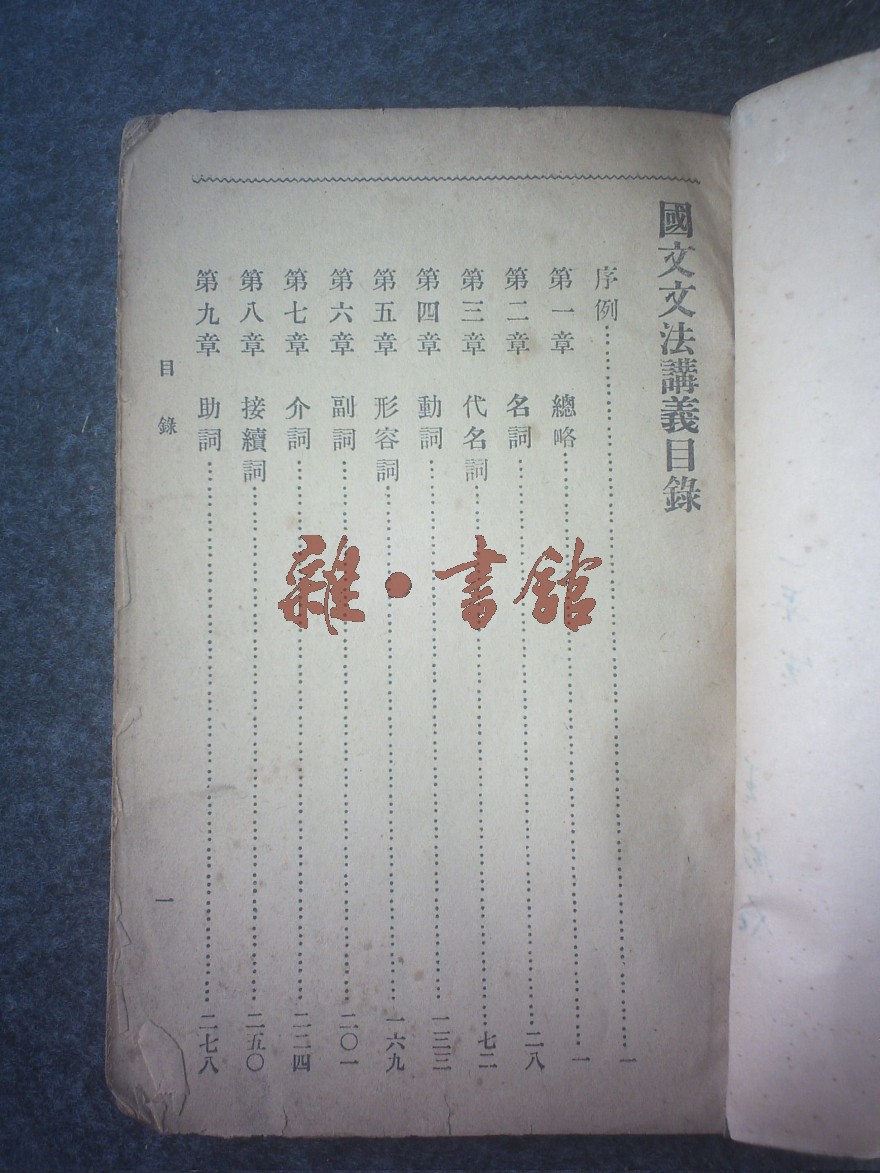 國文文法講義目錄
序例……………………一
第一章 總略……………………一
第二章 名詞……………………二八
第三章 代名詞……………………七二
第四章 動詞……………………一三三
第五章 形容詞……………………一六九
第六章 副詞……………………二〇一
第七章 介詞……………………二二四
第八章 接續詞……………………二五〇
第九章 助詞……………………二七八
目錄 一
雜·書館